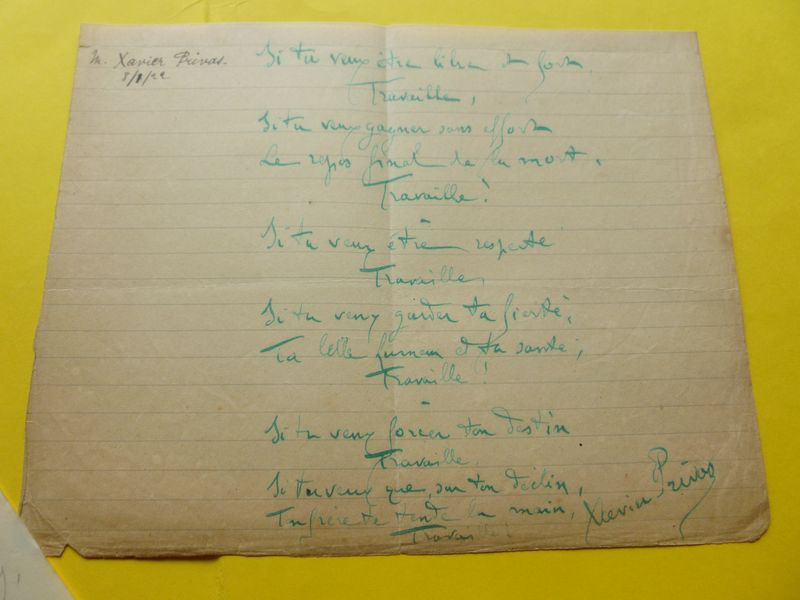 M. Xavier Privas.
Si tu veux être libre et fort,
Travaille,
Si tu veux gagner sans effort
Le repos final de la mort,
Travaille !
Si tu veux être respecté
Travaille,
Si tu veux garder ta fierté,
Ta belle humeur et ta santé,
Travaille !
Si tu veux forcer ton destin
Travaille,
Si tu veux que, sur ton déclin,
Un frère te tende la main,
Travaille !
Xavier Privas